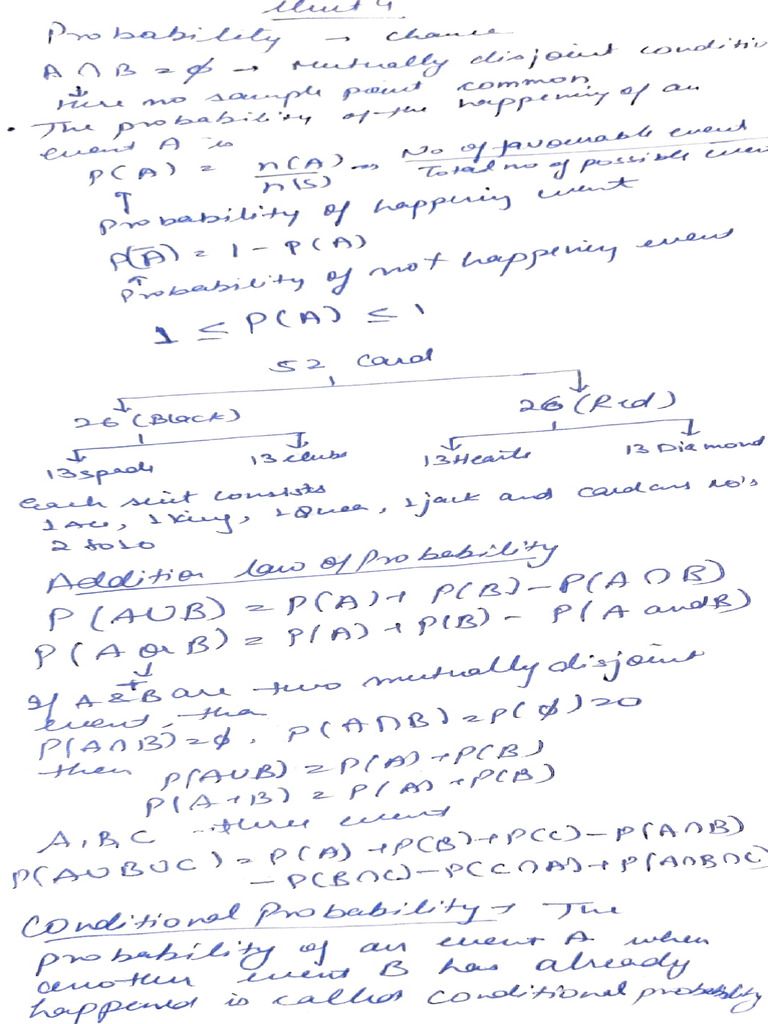 Unit 4
Probability → chance
A ∩ B = ϕ → Mutually disjoint conditio
↓
Here no sample point common
• The probability of the happening of an
event A is
P(A) = n(A)/n(S) → No of favourable event/Total no of possible even
↑
Probability of happening event
P(A̅) = 1 - P(A)
↑
Probability of not happening event
1 ≤ P(A) ≤ 1
52 Card
26 (Black) 26 (Red)
13 spade 13 clubs 13 Hearts 13 Diamond
each suit consists
1 Ace, 1 King, 1 Queen, 1 jack and cards no's
2 to 10
Addition law of Probability
P(A∪B) = P(A) + P(B) - P(A∩B)
P(A or B) = P(A) + P(B) - P(A and B)
↓
+
If A & B are two mutually disjoint
event, the
P(A∩B) = ϕ, P(A∩B) = P(ϕ) = 0
then P(A∪B) = P(A) + P(B)
P(A+B) = P(A) + P(B)
A, B, C - three event
P(A∪B∪C) = P(A) + P(B) + P(C) - P(A∩B)
- P(B∩C) - P(C∩A) + P(A∩B∩C)
Conditional Probability → The
probability of an event A when
another event B has already
happened is called conditional probability